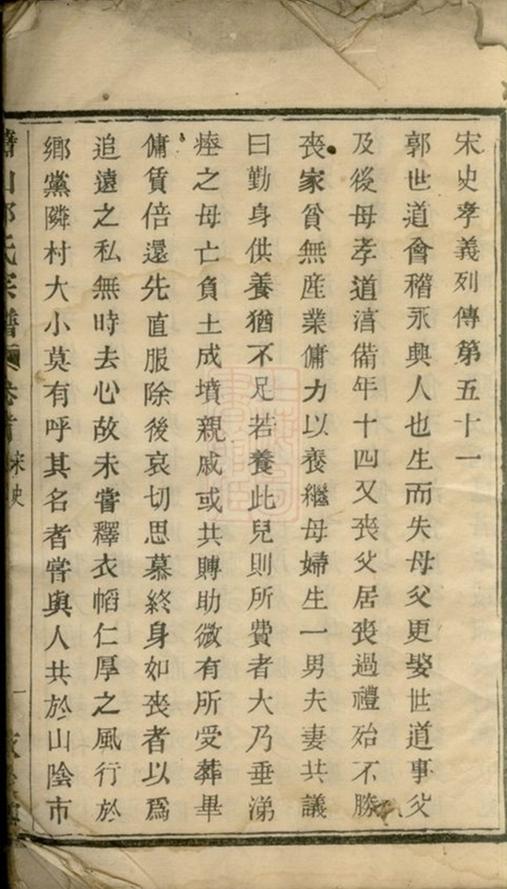 宋史孝義列傳第五十一
郭世道會稽永興人也生而失母父更娶世道事父
及後母孝道淯備年十四又喪父居喪過禮殆不勝
喪家貧無産業傭力以養繼母婦生一男夫妻共議
曰勤身供養猶不足若養此兒則所費者大乃垂涕
瘞之母亡負土成墳親戚或共賻助微有所受葬畢
傭賃倍還先直服除後哀切思慕終身如喪者以爲
追遠之私無時去心故未嘗釋衣幍仁厚之風行於
鄉黨隣村大小莫有呼其名者嘗與人共於山陰市
氏宗譜 卷首 宋史 一